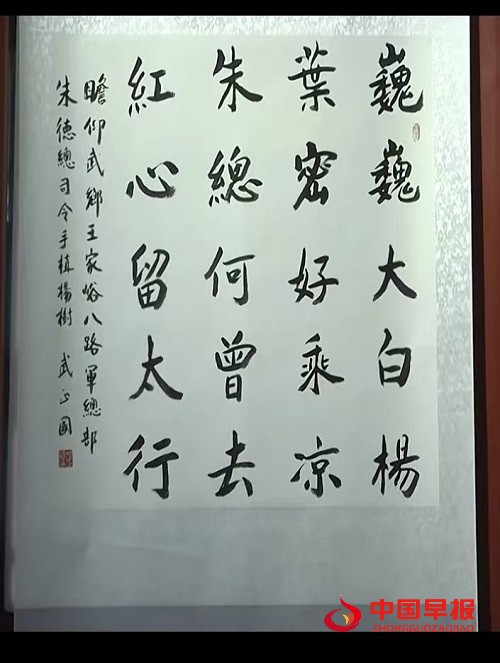 巍巍大白楊
葉密好乘凉
朱總何曾去
紅心留太行
瞻仰武鄉王家峪八路軍總部
朱德總司令手植楊樹 武正國
中国早报
ZHONGGUOZAOBAO